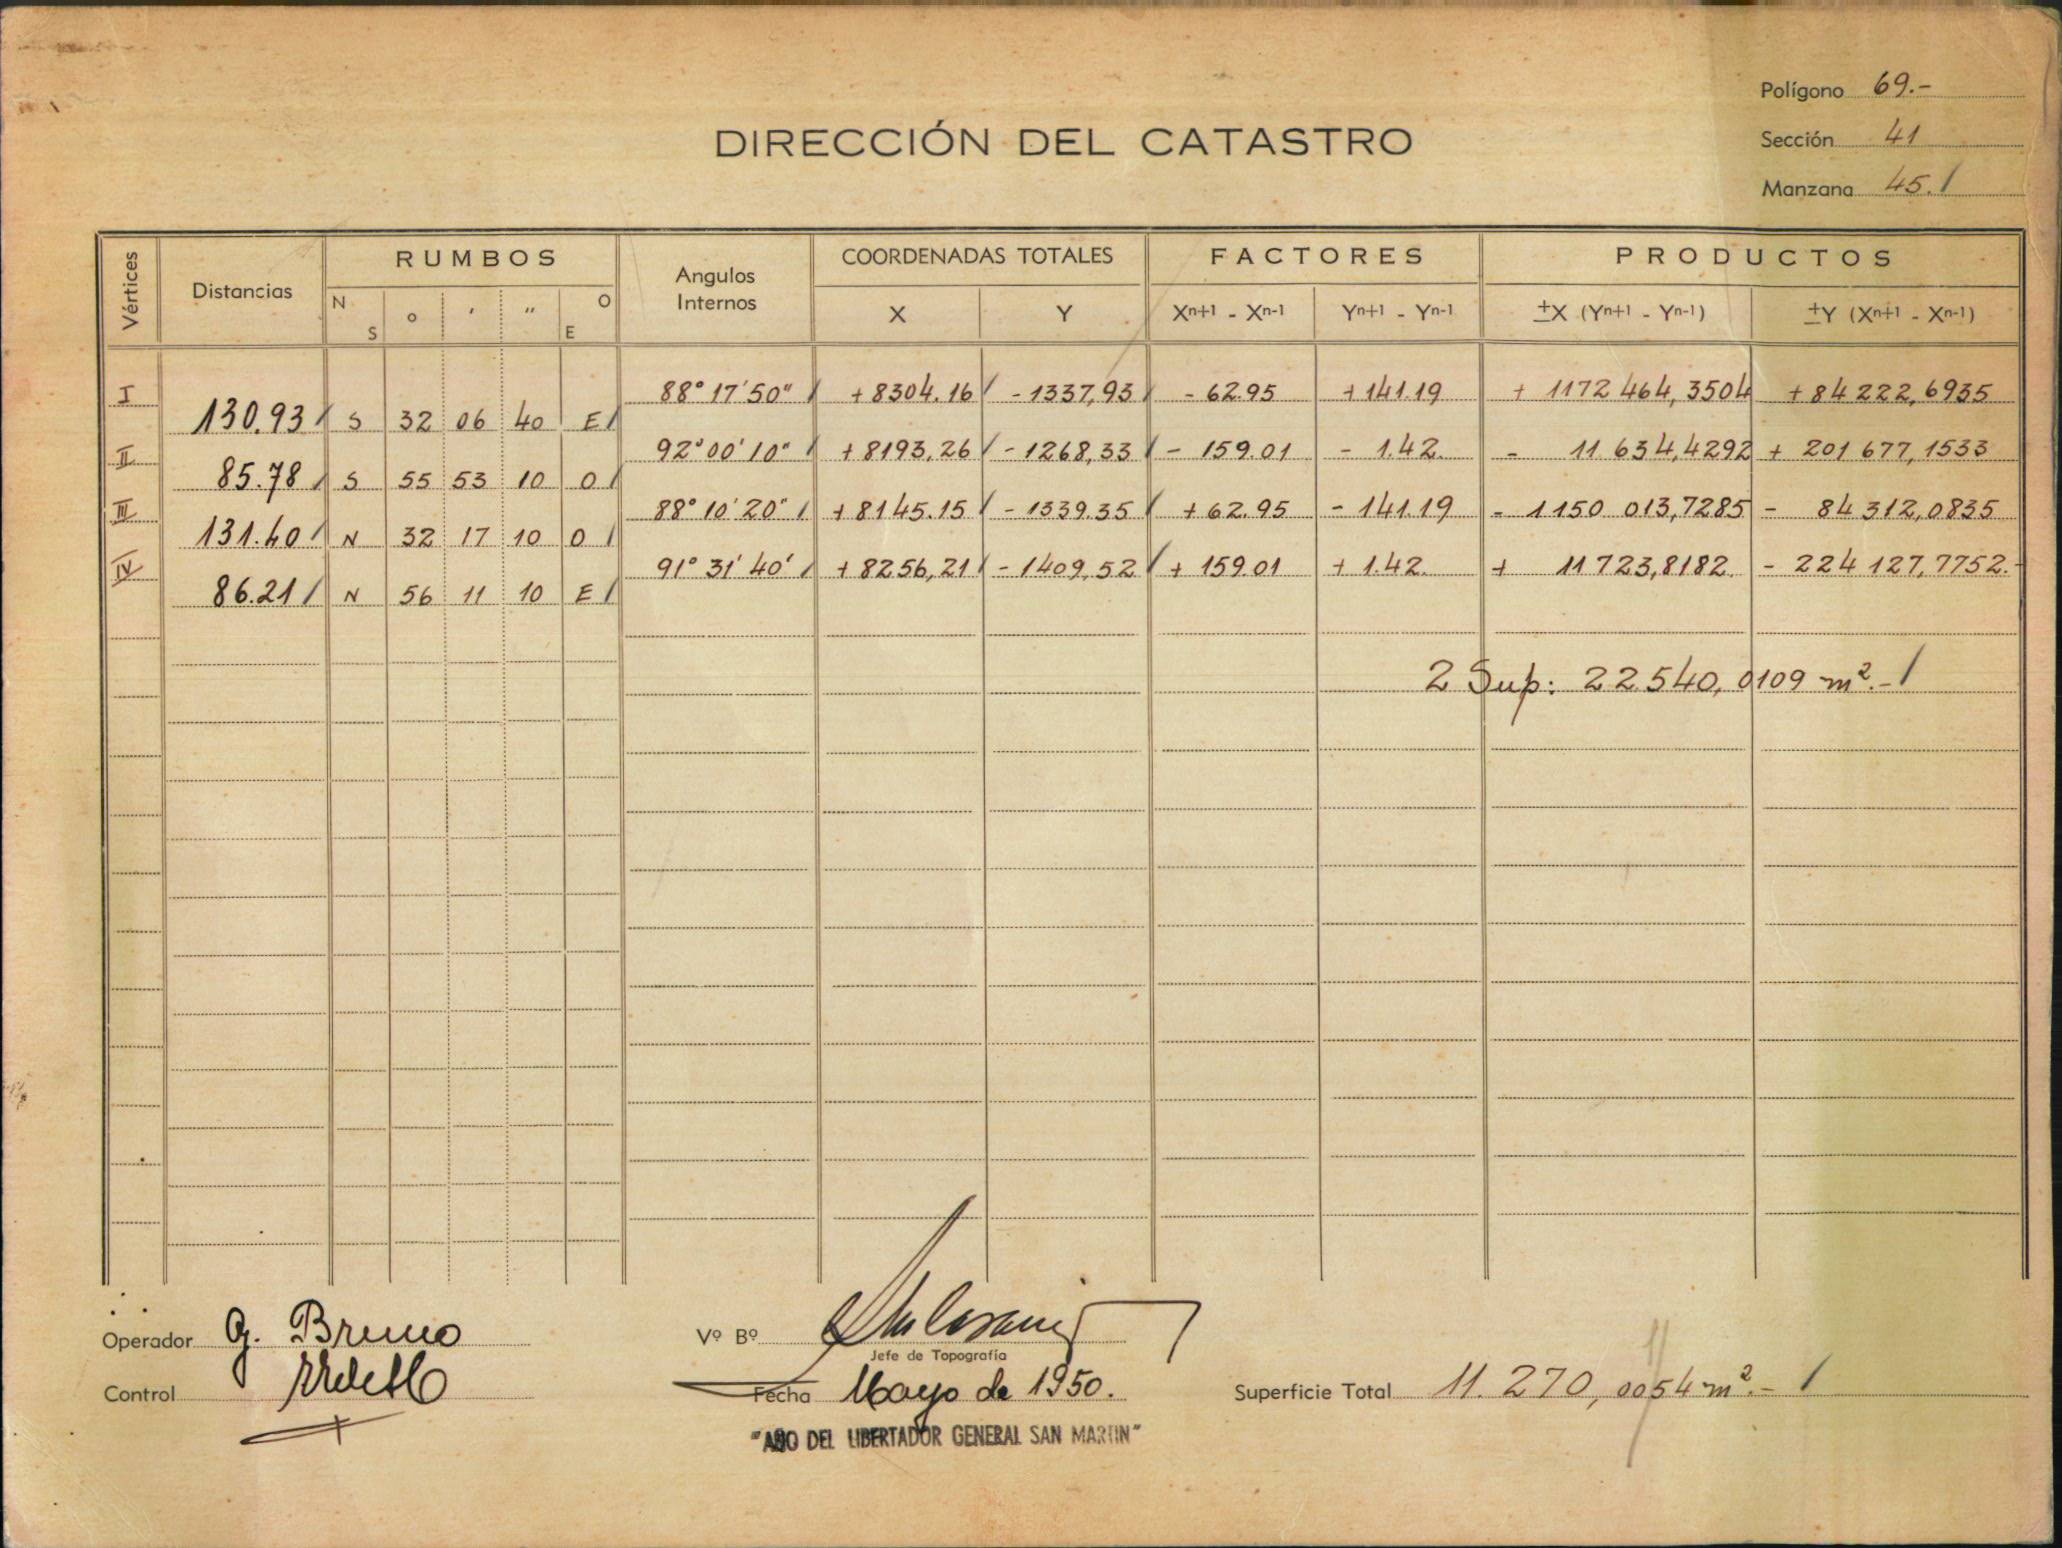 Polígono 69.-
DIRECCIÓN DEL CATASTRO
Sección 41
Manzana 45.
Vértices Distancias RUMBOS Angulos Internos COORDENADAS TOTALES FACTORES PRODUCTOS
N S o ' " O E X Y Xn+1 - Xn-1 Yn+1 - Yn-1 ±X (Yn+1 - Yn-1) ±Y (Xn+1 - Xn-1)
I 88° 17' 50" +8304.16 -1337,93 - 62.95 +141.19 + 1172 464,3504 +84 222,6935
130.93 S 32 06 40 E
II 92° 00' 10" +8193,26 -1268,33 - 159.01 - 1.42. - 11 634,4292 + 201 677,1533
85.78 S 55 53 10 O
III 88° 10' 20" +8145.15 -1339.35 +62.95 - 141.19 - 1150 013,7285 - 84 312,0835
131.40 N 32 17 10 O
IV 91° 31' 40' +8256,21 -1409,52 + 159.01 + 1.42. + 11 723,8182. - 224 127,7752.
86.21 N 56 11 10 E
2 Sup: 22.540,0109 m².-
Operador G. Bruno Vº Bº
Jefe de Topografía
Control Fecha Mayo de 1950. Superficie Total 11.270,0054 m².-
"AÑO DEL LIBERTADOR GENERAL SAN MARTIN"